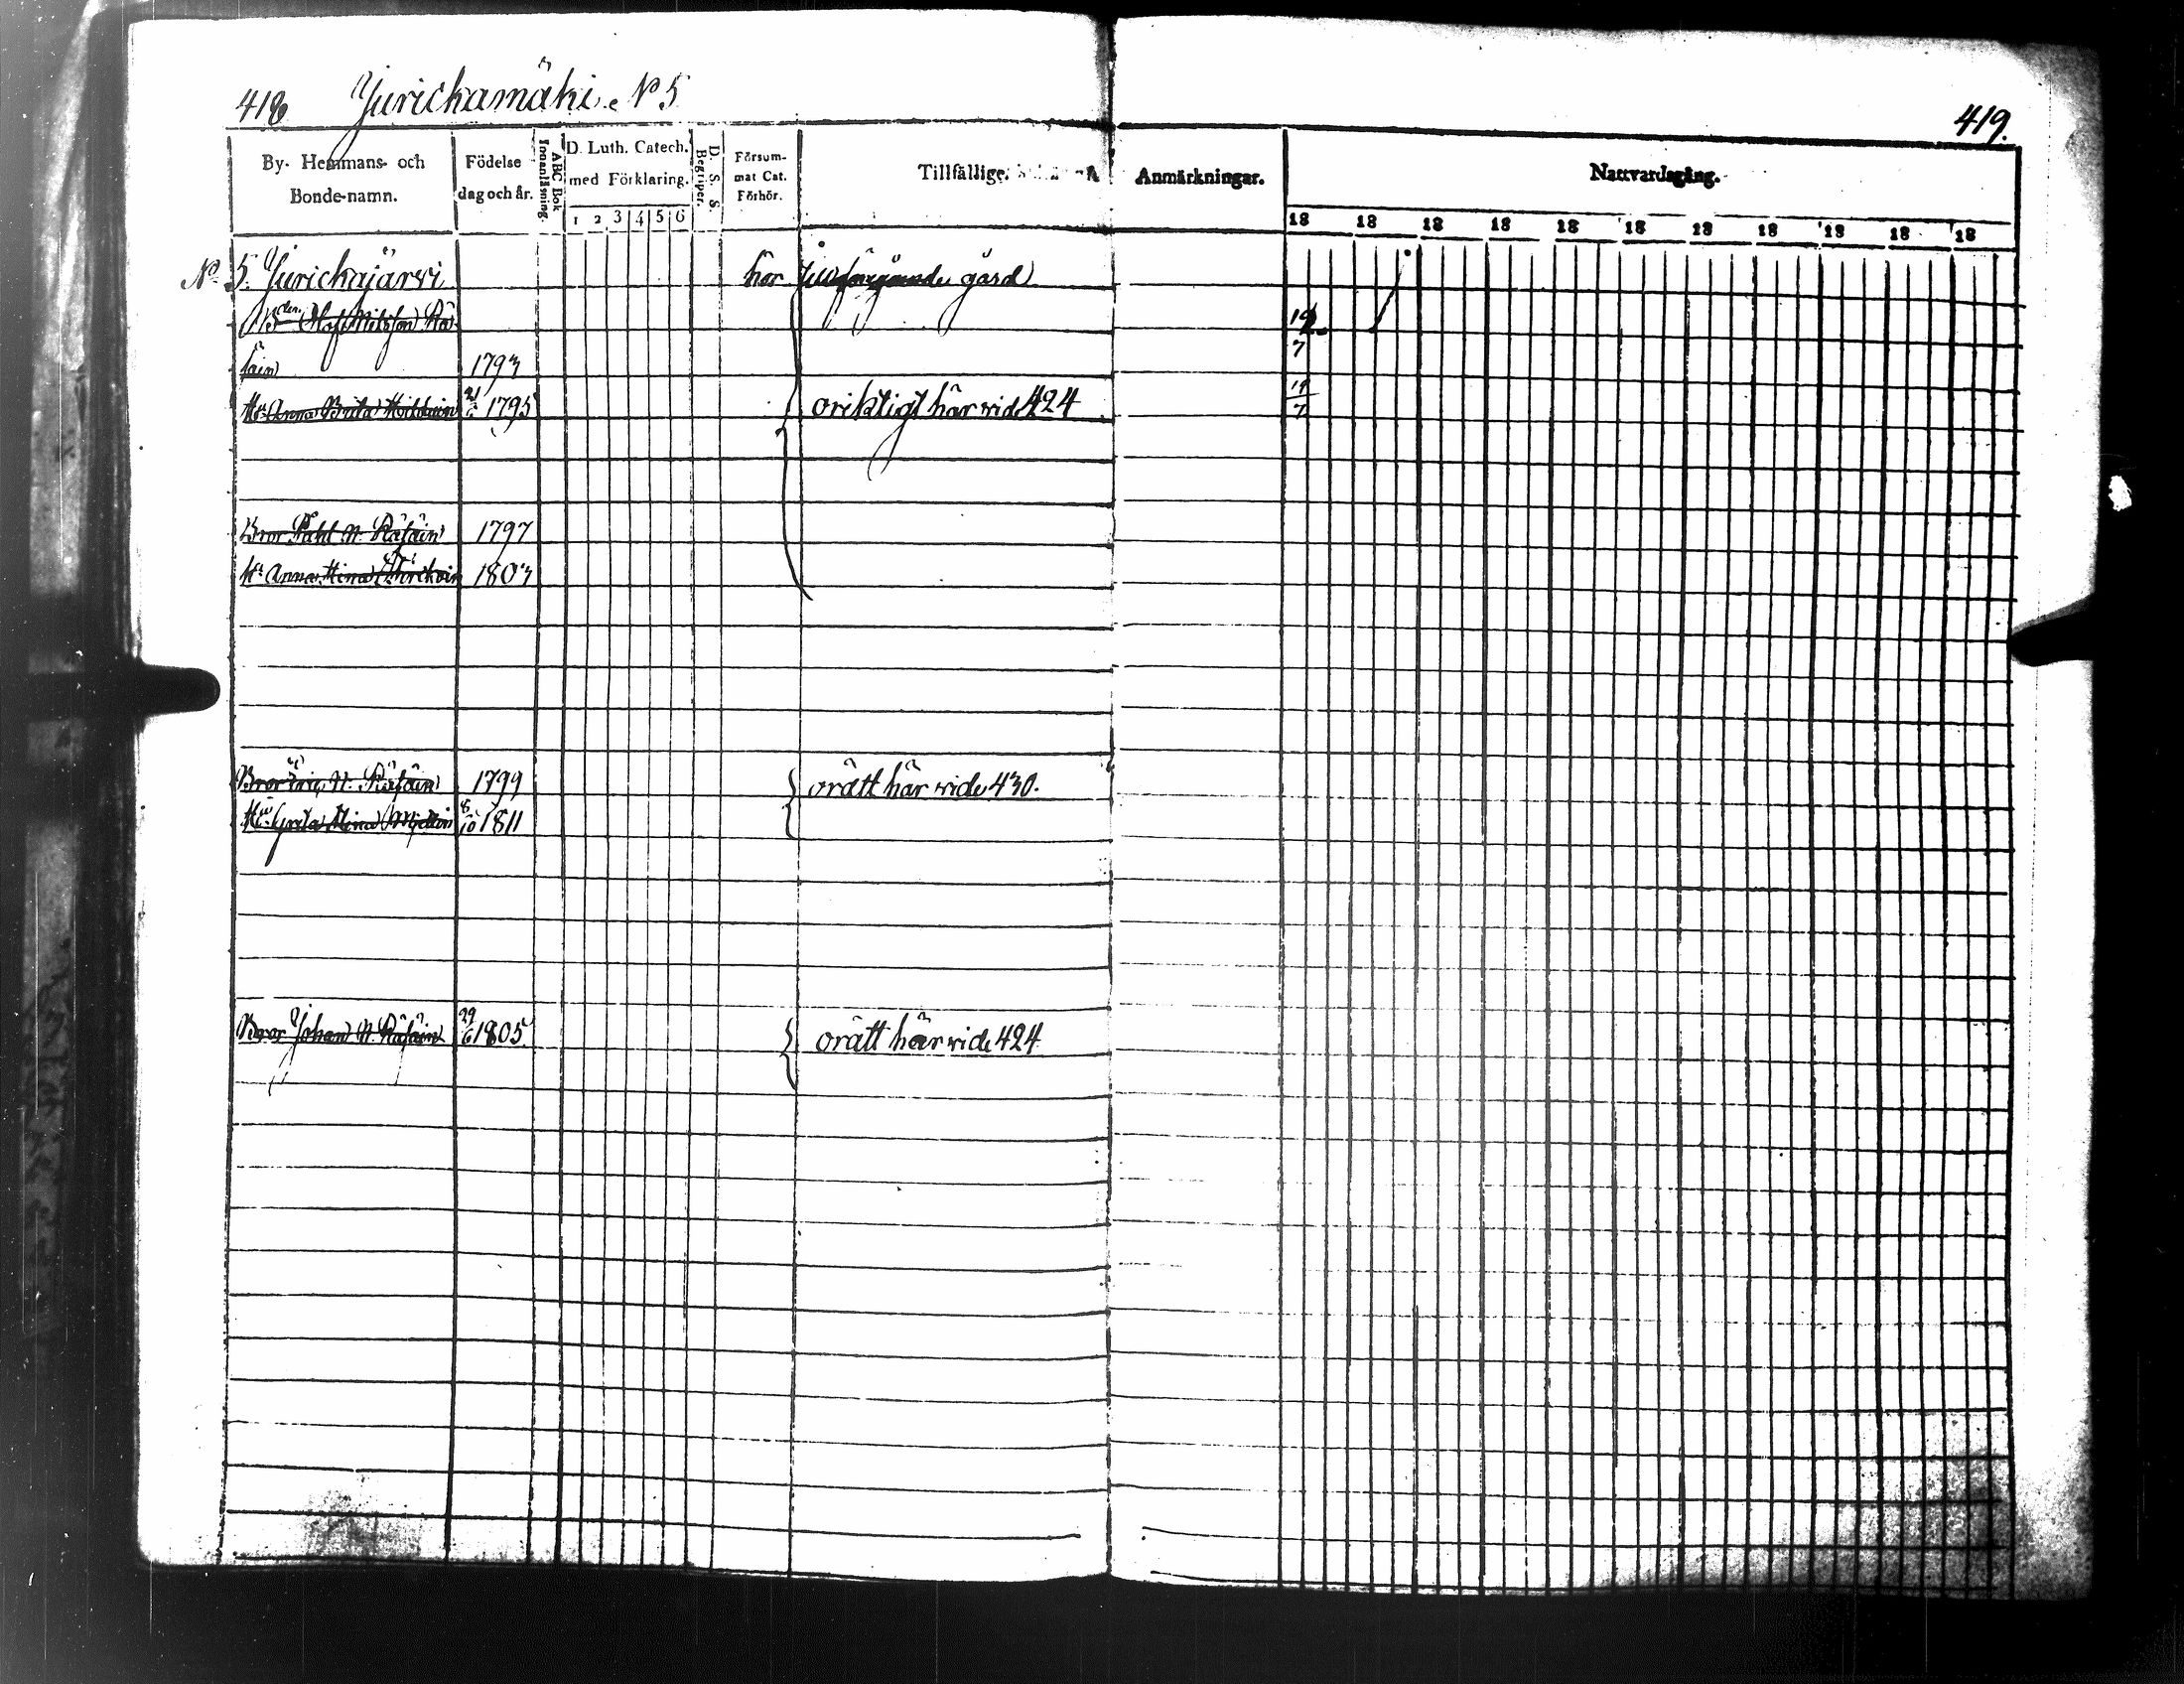 418 Jurickamäki. No 5
419.
By- Hemmans- och Bonde-namn.
Födelse dag och år.
ABC Bok Innanläsning.
D. Luth. Catech. med Förklaring.
1 2 3 4 5 6
D. S. S. Begriper.
Försum- mat Cat. Förhör.
Tillfällige
Anmärkningar.
Nattvardsgång.
18 18 18 18 18 18 18 18 18 18 18
No 5. Jurickajärvi hör föregående gård
Bden Olof Nilsson Rä-
säin 1793
19 7
Hu Anna Brita 21 1795 oriktigt här vide 424
19/7
Bror Påhl N. Räsäin 1797
Hu Anna Stina 1803
Bror Eric N. Räsäin 1799 orätt här vide 430.
Hu Greta Stina 8/10 1811
Bror Johan N. Räsäin 29/6 1805 orätt här vide 424